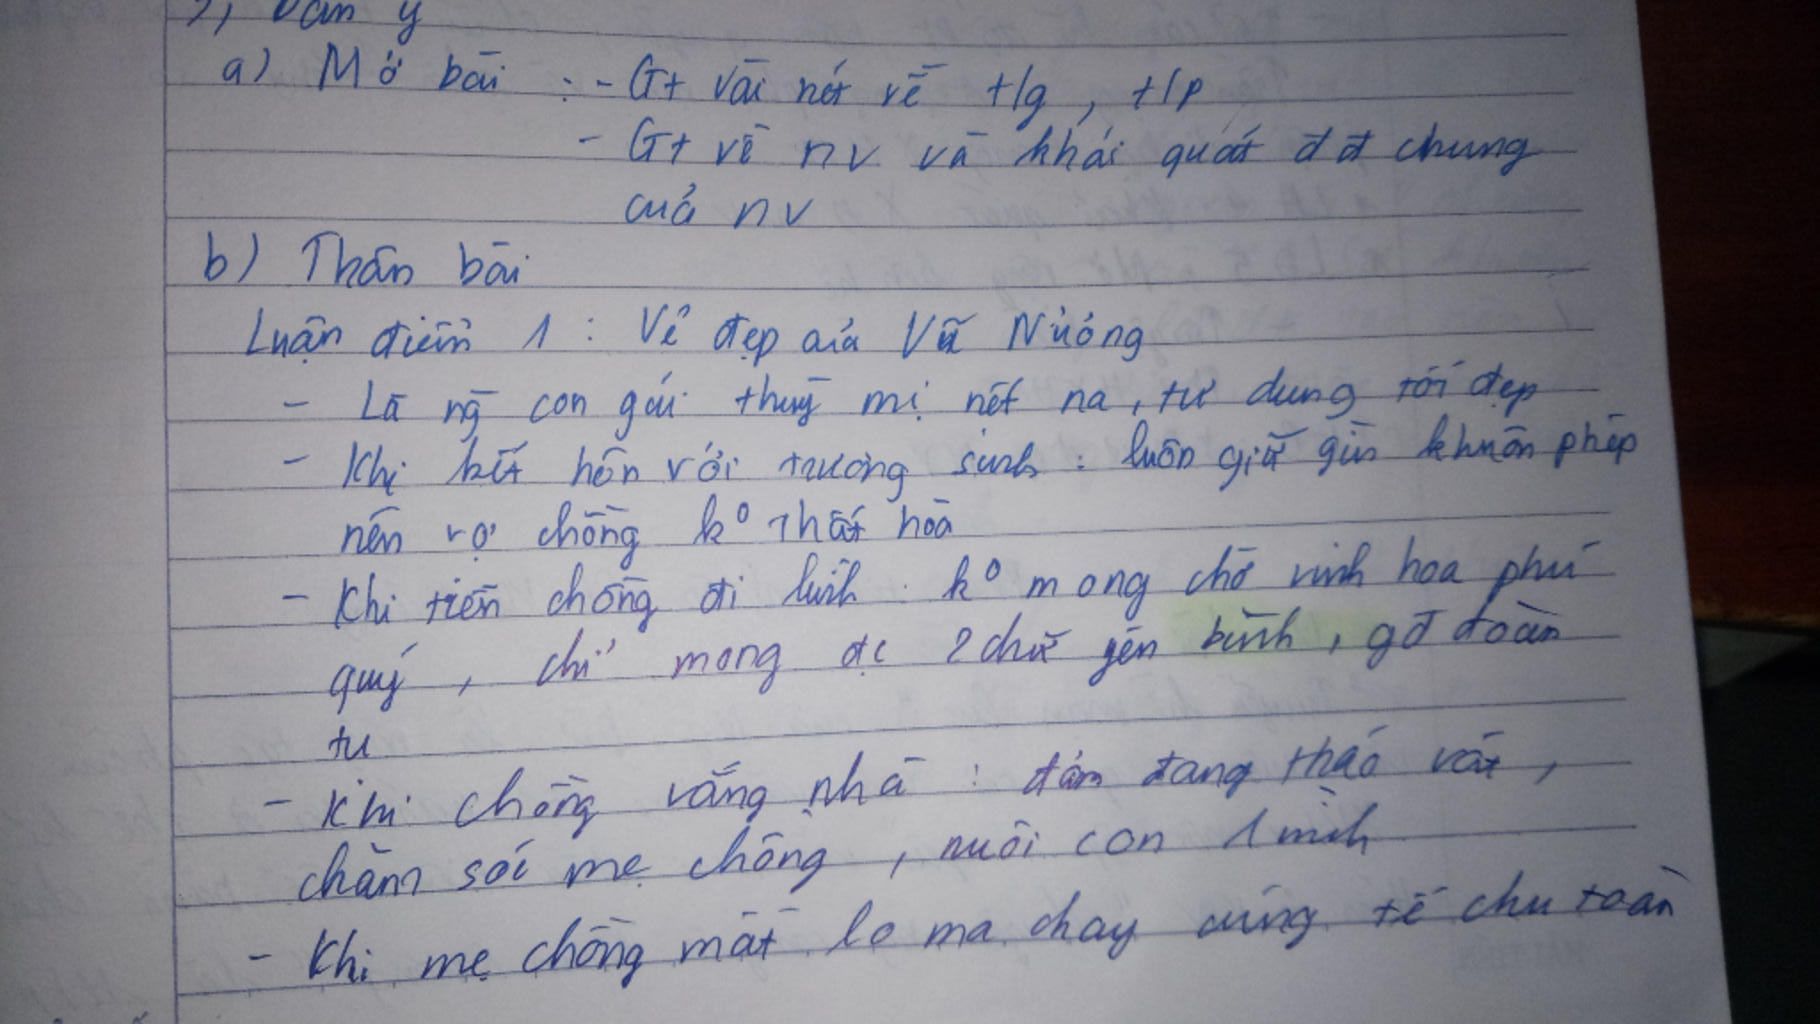 2) Dàn ý
a) Mở bài : - Gt vài nét về t/g , t/p
- Gt về nv và khái quát đ đ chung
của nv
b) Thân bài
Luận điểm 1 : Vẻ đẹp của Vũ Nương
- Là ng con gái thuỳ mị nết na, tư dung tốt đẹp
- Khi kết hôn với trương sinh : luôn giữ gìn khuôn phép
nên vợ chồng k⁰ thất hoà
- Khi tiễn chồng đi lính : k⁰ mong chờ vinh hoa phú
quý , chỉ mong đc 2 chữ yên bình , gđ đoàn
tụ
- Khi chồng vắng nhà : đảm đang tháo vát ,
chăm sóc mẹ chồng , nuôi con 1 mình
- Khi mẹ chồng mất lo ma chay cúng tế chu toàn